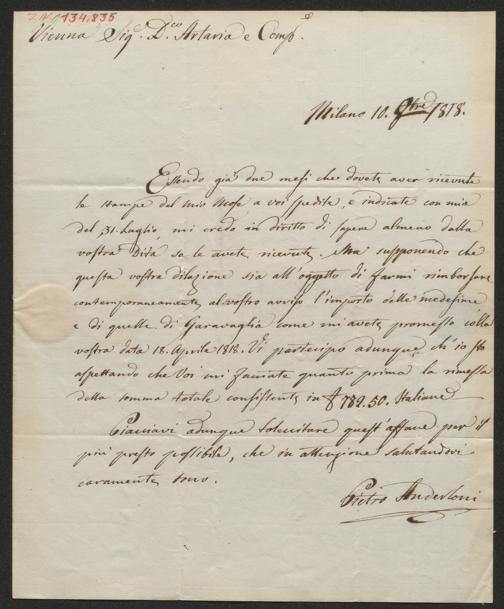 I.N. 134.835
Vienna Sigr. Dco. Artaria e Compe.
Milano 10. 9bre 1818.
Essendo già due mesi che dovete aver ricevute
le stampe del mio Mosè a voi spedite, e indicate con mia
del 31. Luglio, mi credo in diritto di sapere almeno dalla
vostra Ditta se le avete ricevute. Ma supponendo che
questa vostra dilazione sia all'oggetto di farmi rimborsare
contemporaneamente al vostro avviso l'importo delle medesime
e di quelle di Garavaglia come mi avete promesso colla
vostra data 18. Aprile 1818. Vi partecipo adunque ch'io sto
aspettando che Voi mi facciate quanto prima la rimessa
della somma totale consistente in £ 782.50. Italiane
Piacciavi adunque sollecitare quest'affare per il
più presto possibile, che in attenzione salutandovi
caramente sono.
Pietro Anderloni